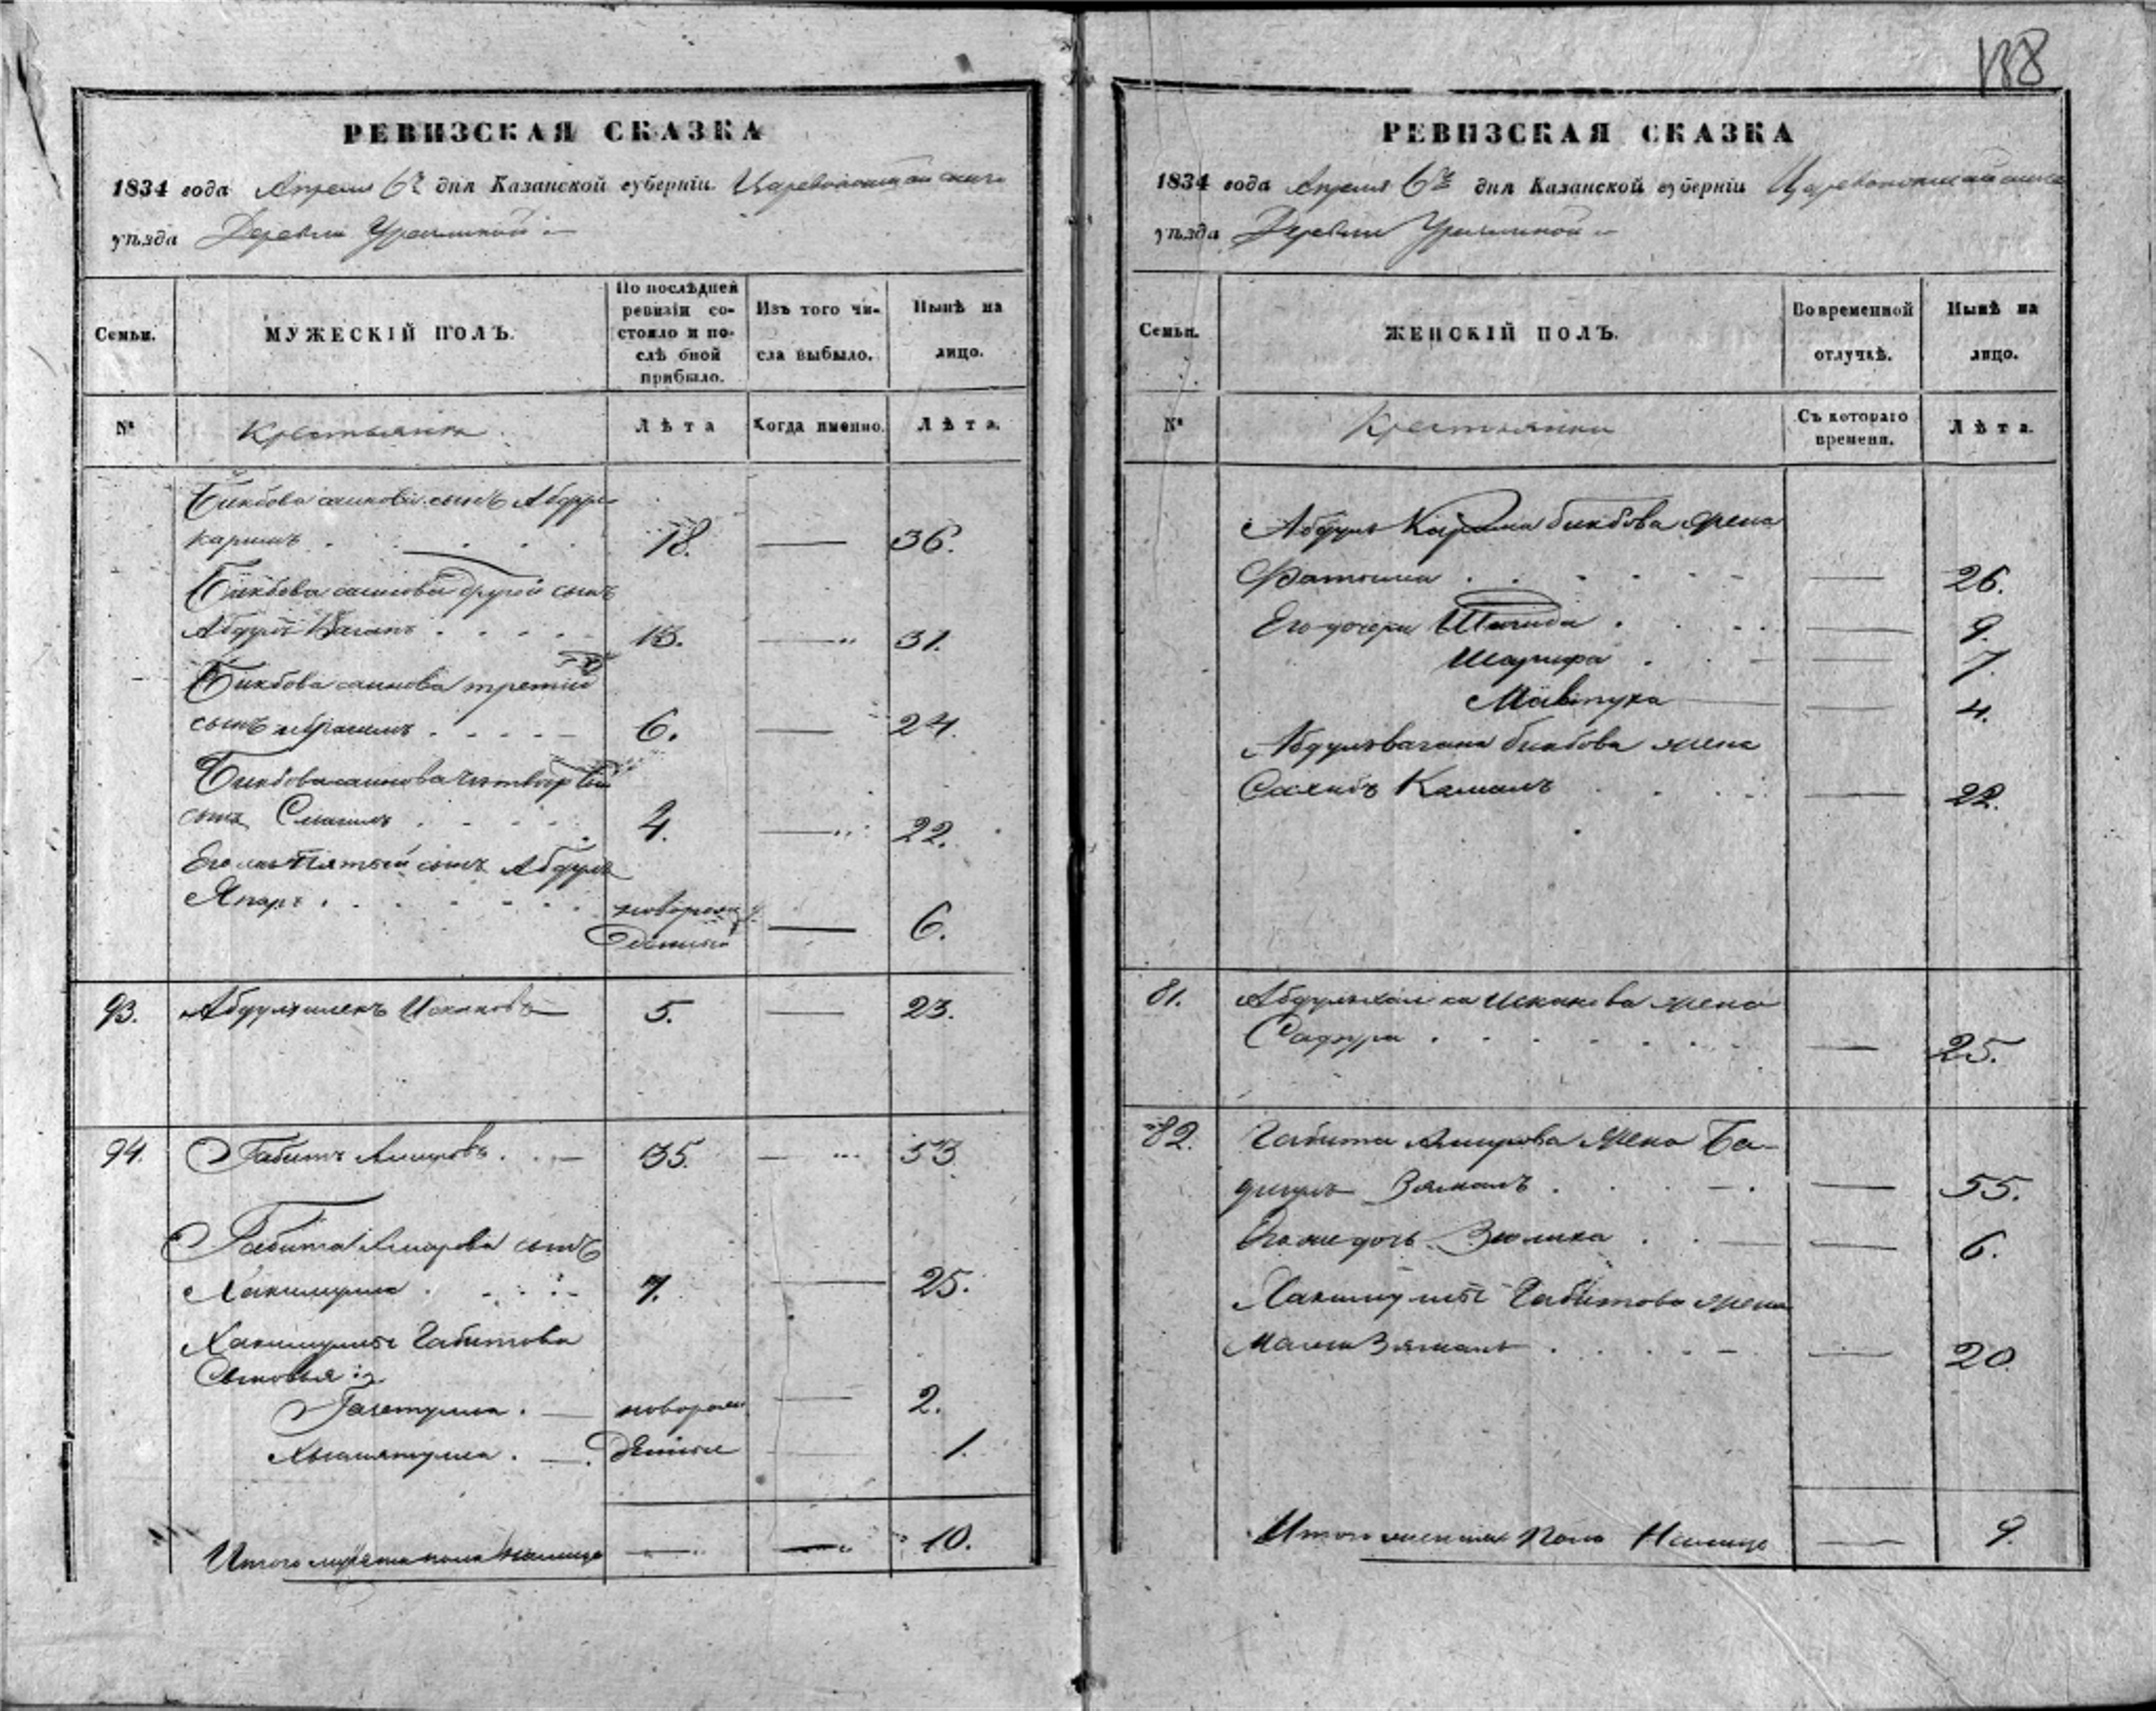 188
РЕВИЗСКАЯ СКАЗКА
1834 года Апреля 6го дня Казанской губернiи Царевококшайскаго
уѣзда Деревни
Семьи.
МУЖЕСКIЙ ПОЛЪ.
По послѣдней ревизiи состояло и послѣ оной прибыло.
Изъ того числа выбыло.
Нынѣ на лицо.
№
Крестьяне
Лѣта
Когда именно.
Лѣта.
Бикбова сынъ Абдул
каримъ 18. 36.
Бикбова другой сынъ
Абдулъ Ваганъ 13. 31.
Бикбова третiй
сынъ Ибрагимъ 6. 24.
Бикбова четвертый
сынъ Смагилъ 4. 22.
Его же пятый сынъ Абдулъ
Япаръ новорожденный 6.
93. Искаковъ 5. 23.
94. Габитъ Амировъ 35. 53
Габита Амирова сынъ
Хакимулла 7. 25.
Хакимуллы Габитова
Сыновья:
новорож 2.
денные 1.
Итого мужеска пола налицо 10.
РЕВИЗСКАЯ СКАЗКА
1834 года Апреля 6го дня Казанской губернiи Царевококшайскаго
уѣзда Деревни
Семьи.
ЖЕНСКIЙ ПОЛЪ.
Во временной отлучкѣ.
Нынѣ на лицо.
№
Крестьянки
Съ котораго времени.
Лѣта.
Абдулъ Карима бикбова жена
Фатыма 26.
Его дочери 9.
Шарифа 7.
Мавтуха 4.
Абдулъвагана бикбова жена
Сахибъ Камалъ 22.
81. Искакова жена
Сафура 25.
82. Габита Амирова жена Ба-
Зямалъ 55.
Его же дочь Зюлиха 6.
Хакимуллы Габитова жена
Зямалъ 20
Итого женска пола налицо 9.